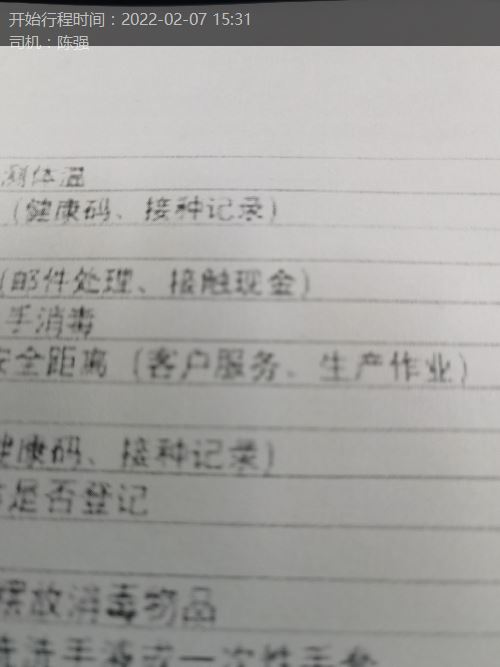 开始行程时间：2022-02-07 15:31
司机：陈强
测体温
（健康码、接种记录）
（邮件处理、接触现金）
手消毒
安全距离（客户服务、生产作业）
健康码、接种记录）
是否登记
摆放消毒物品
洗手液或一次性手套